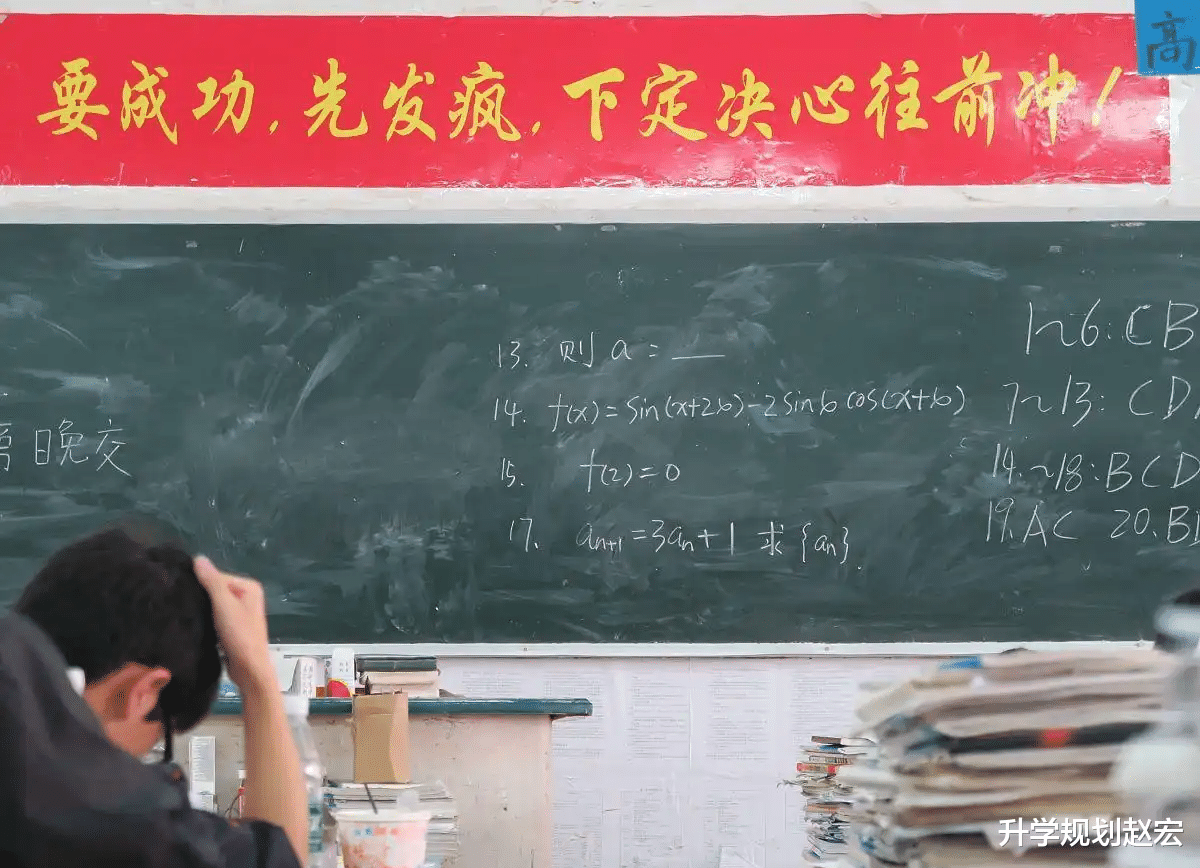 高
要成功,先发疯,下定决心往前冲!
13. 则 a = ___
14. f(x) = sin(x+2b)-2sinb cos(x+b)
15. f(2) = 0
17. aₙ₊₁ = 3aₙ+1 求{aₙ}
晚交
1~6: CB
7~13: CD
14.~18: BCD
19.AC 20.B
升学规划赵宏